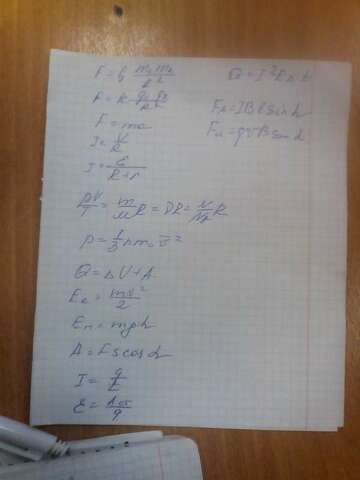 F=G m₁m₂/R²
F=k q₁q₂/R²
F=ma
I=U/R
I=ε/R+r
pV/T=m/μR=νR=N/NₐR
p=1/3nm₀v̅²
Q=ΔU+A
Eк=mv²/2
Eп=mgh
A=Fscosα
I=q/t
ε=Aст/q
Q=I²RΔt
Fₐ=IBlsinα
Fл=qvBsinα